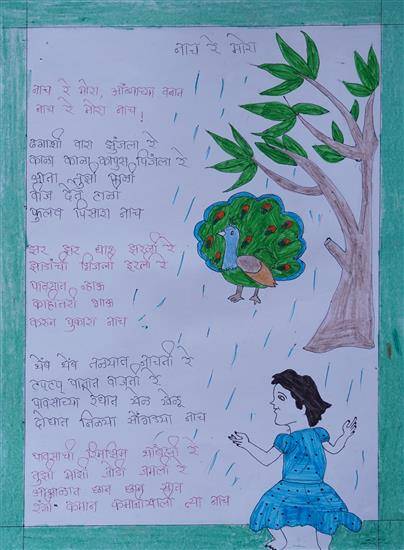 नाच रे मोरा
नाच रे मोरा, आंब्याच्या वनात
नाच रे मोरा नाच !
ढगांशी वारा झुंजला रे
काळा काळा कापूस पिंजला रे
आता तुझी पाळी
वीज देते टाळी
फुलव पिसारा नाच
झर झर धार झरली रे
झाडांची भिजली इरली रे
पावसात न्हाऊ
काहीतरी गाऊ
करुन पुकारा नाच
थेंब थेंब तळ्यात नाचती रे
टपटप पानांत वाजती रे
पावसाच्या रेघात खेळ खेळू
दोघात निळ्या सौंगड्या नाच
पावसाची रिमझिम थांबली रे
तुझी माझी जोडी जमली रे
आभाळात छान छान सात
रंगी कमान कमानीखाली त्या नाच